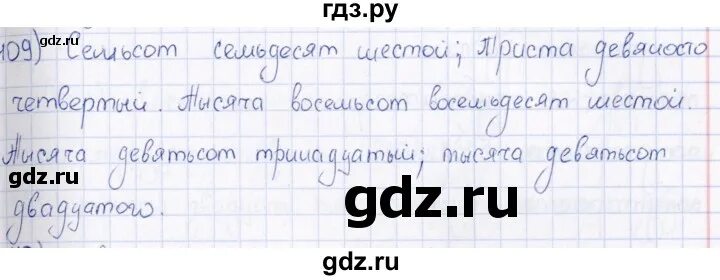 гдз.ру
109) Семьсот семьдесят шестой; триста девяносто
четвертый. Тысяча восемьсот восемьдесят шестой.
Тысяча девятьсот тринадцатый; тысяча девятьсот
двадцатого.
gdz.ru
gdz.ru
gdz.ru
gdz.ru
gdz.ru
gdz.ru
gdz.ru
гдз.ру